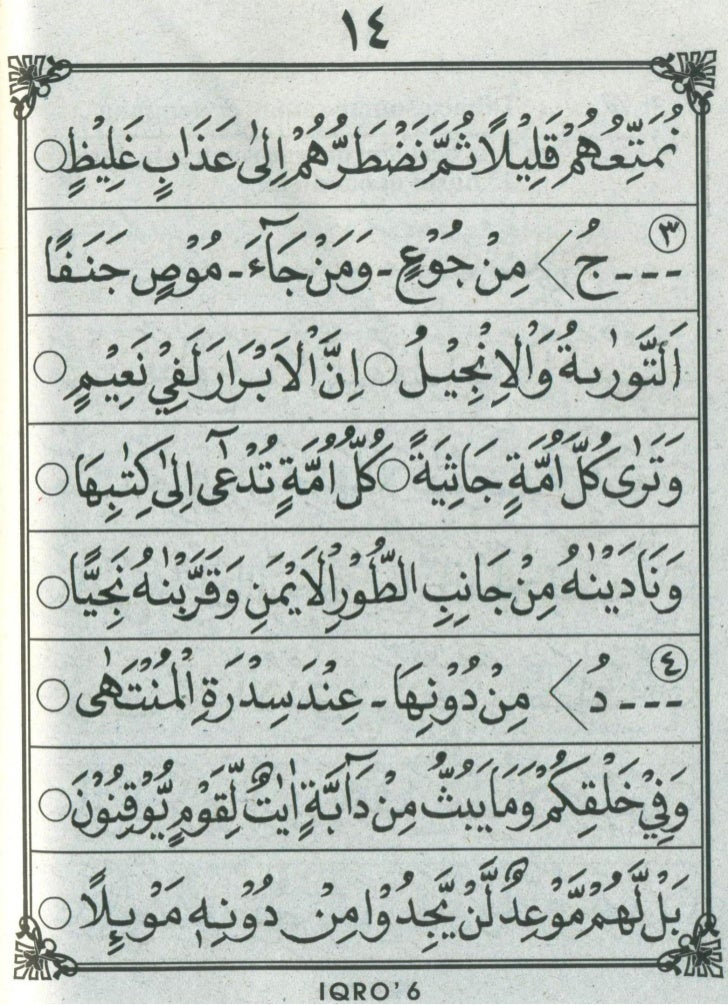 ١٤
نُمَتِّعُهُمْ قَلِيْلًا ثُمَّ نَضْطَرُّهُمْ اِلٰى عَذَابٍ غَلِيْظٍ ○
٣ --- جُ > مِنْ جُوْعٍ - وَمَنْ جَآءَ - مُوْصٍ جَنَفًا
اَلتَّوْرٰىةُ وَالْاِنْجِيْلُ ○ اِنَّ الْاَبْرَارَ لَفِيْ نَعِيْمٍ ○
وَتَرٰى كُلَّ اُمَّةٍ جَاثِيَةً ○ كُلُّ اُمَّةٍ تُدْعٰٓى اِلٰى كِتٰبِهَا ○
وَنَادَيْنٰهُ مِنْ جَانِبِ الطُّوْرِ الْاَيْمَنِ وَقَرَّبْنٰهُ نَجِيًّا ○
٤ --- دُ > مِنْ دُوْنِهَا - عِنْدَ سِدْرَةِ الْمُنْتَهٰى ○
وَفِيْ خَلْقِكُمْ وَمَا يَبُثُّ مِنْ دَآبَّةٍ اٰيٰتٌ لِّقَوْمٍ يُّوْقِنُوْنَ ○
بَلْ لَّهُمْ مَّوْعِدٌ لَّنْ يَّجِدُوْا مِنْ دُوْنِهٖ مَوْئِلًا ○
IQRO'6